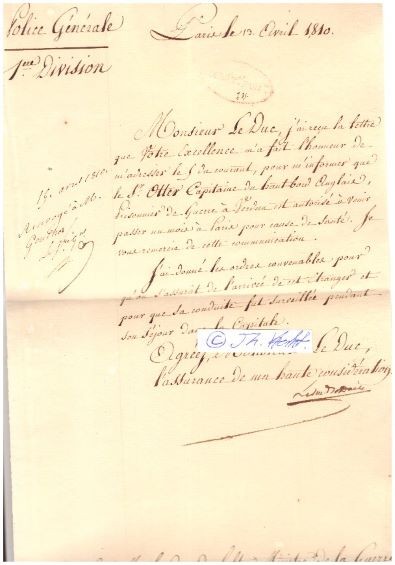 Police Générale
1ère Division
Paris le 13 Avril 1810.
Monsieur Le Duc, j'ai reçu la lettre
que Votre Excellence m'a fait l'honneur de
m'adresser le 5 du courant, pour m'informer que
le Sr Otter Capitaine du haut bord Anglais,
Prisonnier de Guerre à Verdun est autorisé à venir
passer un mois à Paris pour cause de Santé. Je
vous remercie de cette communication.
J'ai donné les ordres convenables pour
qu'on s'assurât de l'arrivée de cet étranger et
pour que sa conduite fut surveillée pendant
son séjour dans la Capitale.
Agréez, Le Duc,
l'assurance de ma haute considération
15. avril 1810.
© J.A. Kostof
de la Guerre